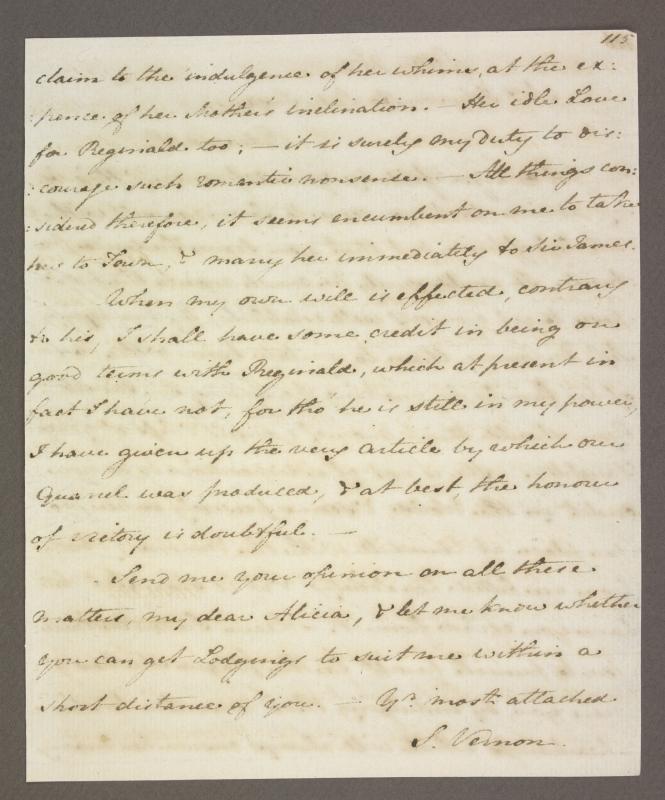 115
claim to the indulgence of her whims, at the ex:
:pence of her Mother's inclination. — Her idle Love
for Reginald too; — it is surely my Duty to dis:
:courage such romantic nonsense. — All things con:
:siderd therefore, it seems encumbent on me to take
her to Town, & marry her immediately to Sir James.
When my own will is effected, contrary
to his, I shall have some credit in being on
good terms with Reginald, which at present in
fact I have not, for tho' he is still in my power,
I have given up the very article by which our
Quarrel was produced, & at best, the honour
of victory is doubtful. —
Send me your opinion on all these
matters, my dear Alicia, & let me know whether
you can get Lodgings to suit me within a
short distance of you. — Yr. most attached
S. Vernon.